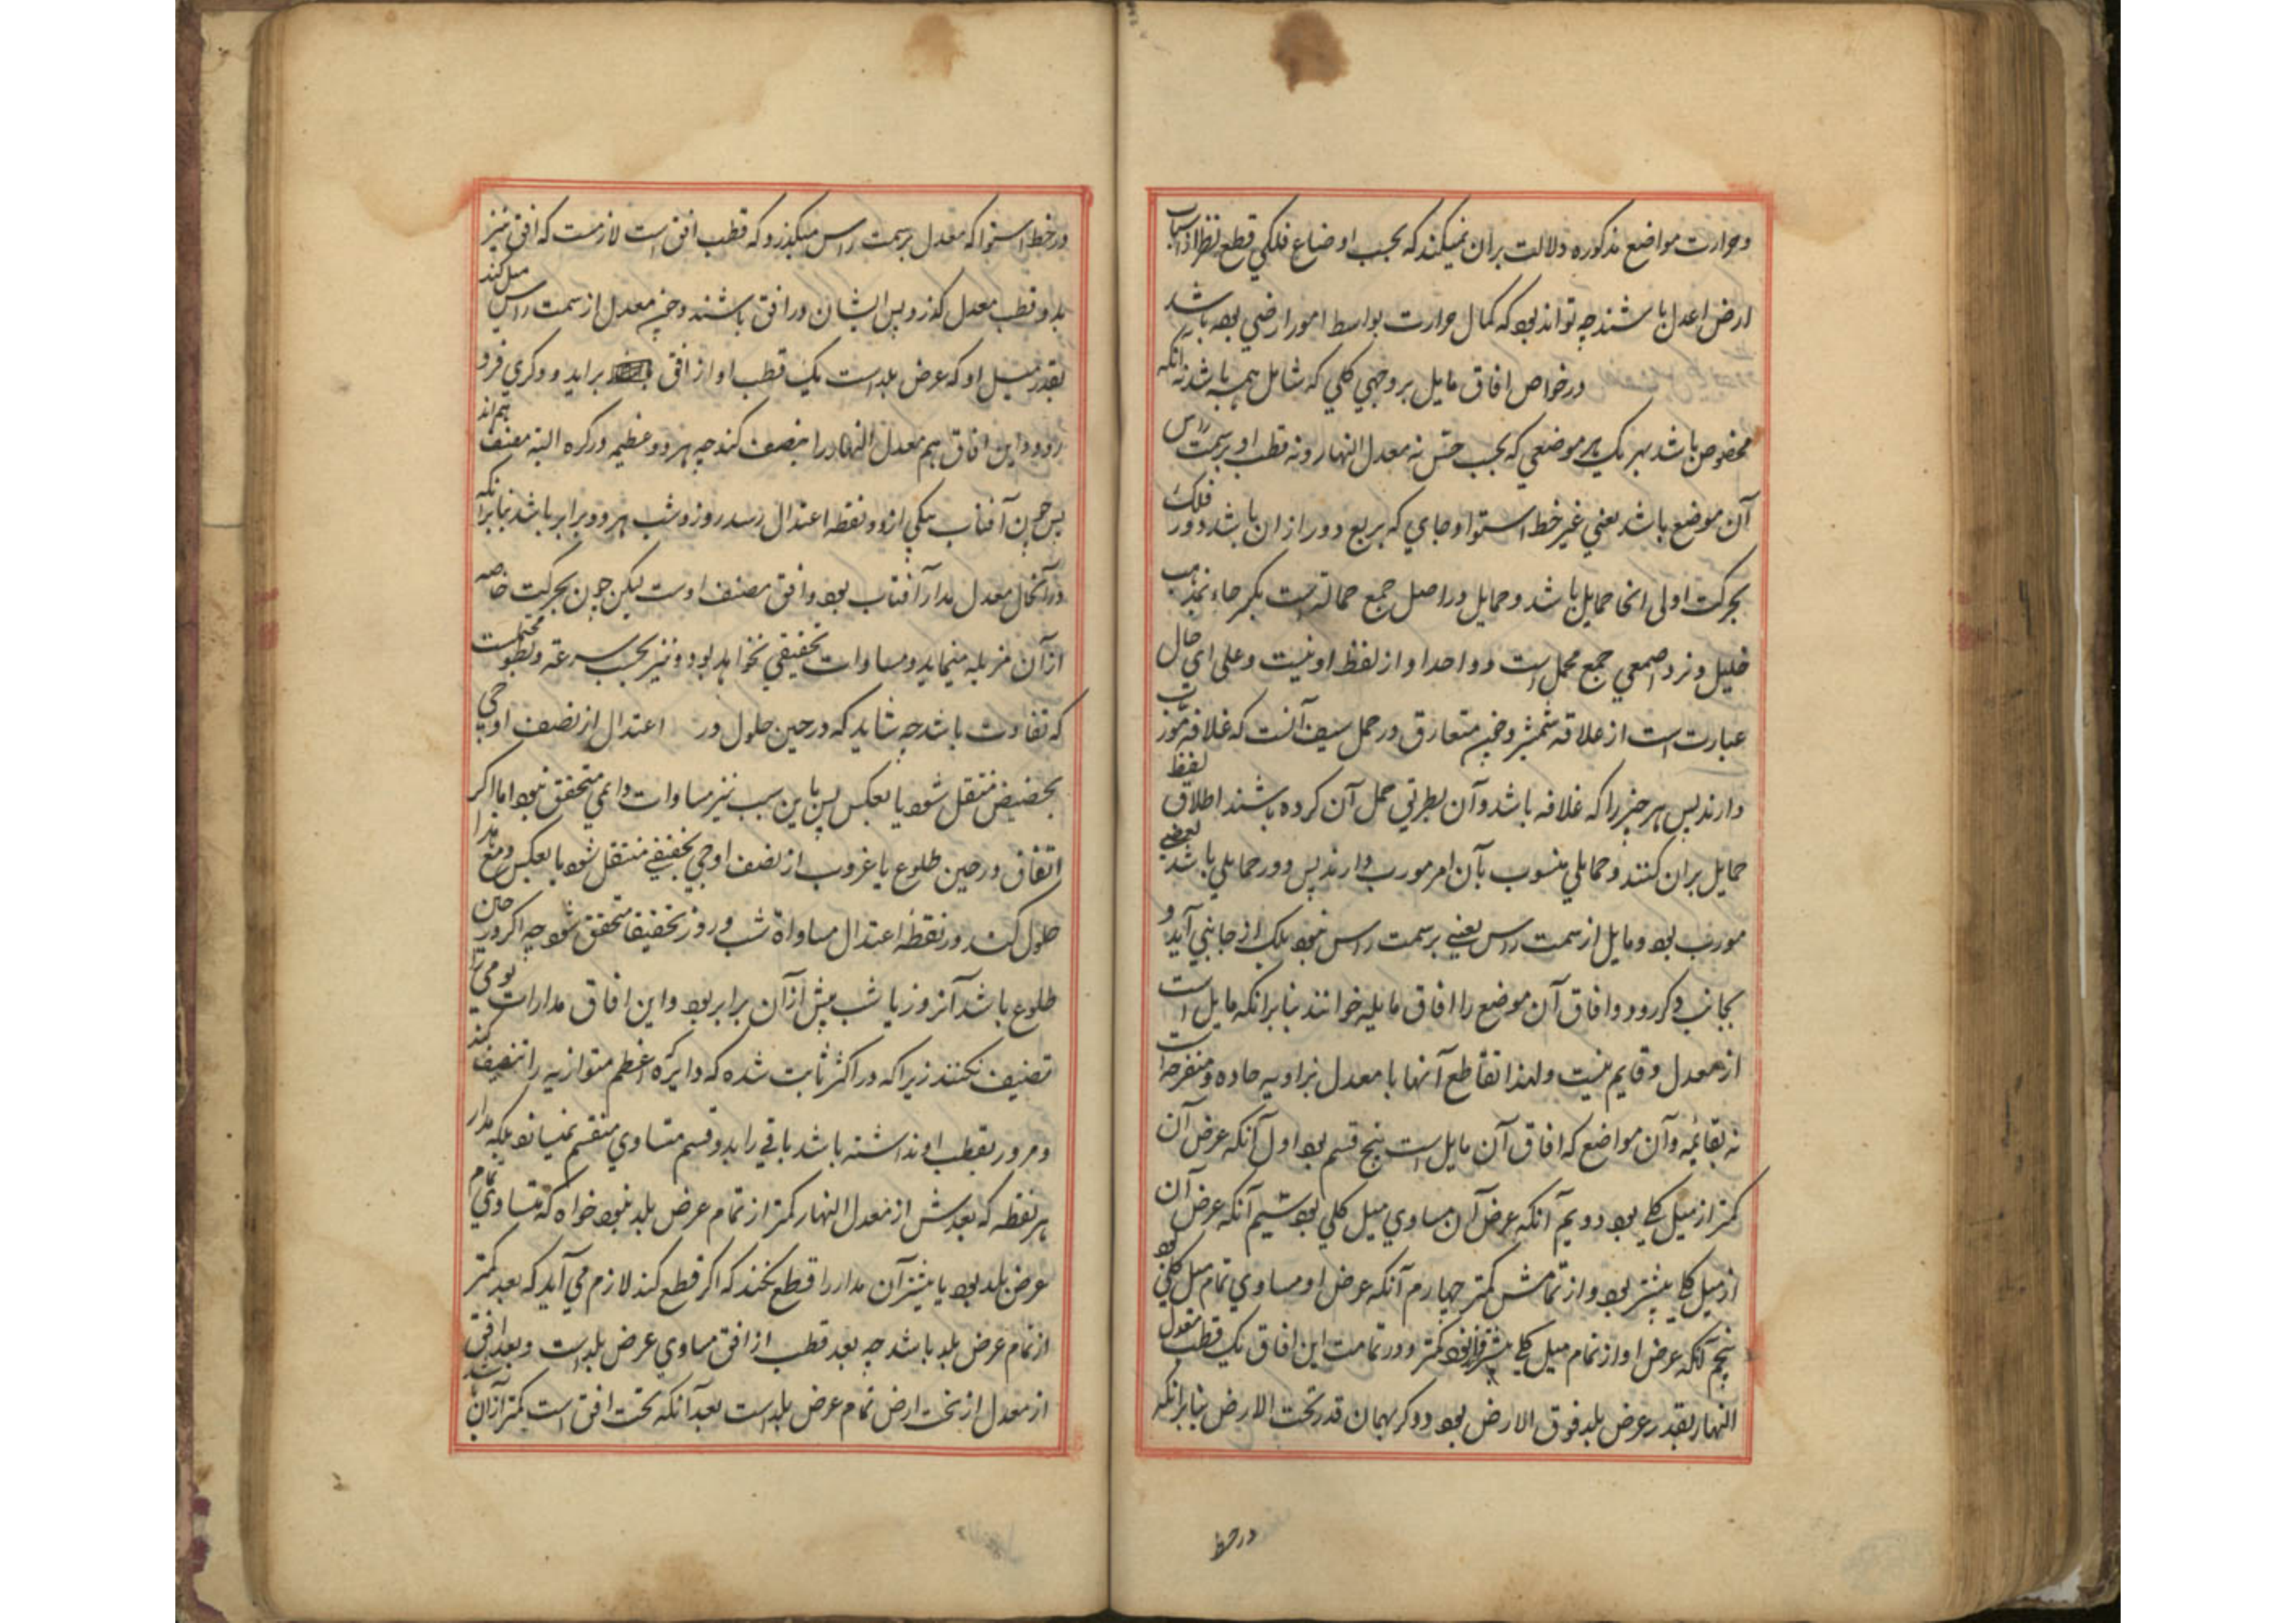 و حرارت مواضع مذکوره دلالت بران نمیکند که بحسب اوضاع فلکی قطع نظر از اسباب
ارض اعدل باشند چه تواند بود که کمال حرارت بواسط امور ارضی بوده باشد
در خواص افاق مایل بر وجهی کلی که شامل همه باشد نه آنکه
مخصوص باشد بهر یک هر موضعی که بحسب حس نه معدل النهار و نه قطب او بر سمت راس
آن موضع باشد یعنی غیر خط استوا و جای که بربع دور ازان باشد دور فلک
بحرکت اولی انجا حمایل باشد و حمایل در اصل جمع حماله است بکسر حاء نزد مذهب
خلیل و نزد اصمعی جمع محمل است و واحد او از لفظ او نیست و علی ای حال
عبارت است از علاقه شمشیر و چنین متعارف در حمل سیف آنست که علاقه مورب
دارند پس هر چیز را که علاقه باشد و آن بطریق حمل آن کرده باشند اطلاق لفظ
حمایل بران کنند و حمایلی منسوب بآن امر مورب دارند پس دور حمایلی باشد یعنی
مورب بود و مایل از سمت راس یعنی بر سمت راس نبود بلک از جانبی آید و
بجانب دکر رود و افاق آن موضع را افاق مایله خوانند بنابر انکه مایل است
از معدل و قایم نیست و لهذا تقاطع آنها با معدل بزاویه حاده و منفرجه است
نه بقائمه و آن مواضع که افاق آن مایل است پنج قسم بود اول آنکه عرض آن
کمتر از میل کلی بود دویم آنکه عرض آن مساوی میل کلی بود سیم آنکه عرض آن
از میل کلی بیشتر بود و از تمامش کمتر چهارم آنکه عرض او مساوی تمام میل کلی بود
پنجم آنکه عرض او از تمام میل کلی بیشتر بود و در تمامت این افاق یک قطب معدل
النهار بقدر عرض بلد فوق الارض بود و دکر بهمان قدر تحت الارض بنابر انکه
در خط
در خط استوا که معدل بر سمت راس میکذرد که قطب افق است لازمست که افق نیز
بدو قطب معدل کذرد پس ایشان در افق باشند و چون معدل از سمت راس میل کند
بقدر میل او که عرض بلد است یک قطب او از افق براید و دکری فرو
رود و این افاق هم معدل النهار را بنصف کنند چه هر دو عظیمه در کره البته منصف هم اند
پس چون آفتاب بیکی از دو نقطه اعتدال رسد روز و شب هر دو برابر باشد بنابر انکه
در آنحال معدل مدار آفتاب بود و افق منصف اوست لیکن چون بحرکت خاصه
از آن مزیله مینماید و مساوات تحقیقی نخواهد بود و نیز بحسب سرعه و بطو محتملست
که تفاوت باشد چه شاید که در حین حلول در اعتدال از نصف اوجی
بحضیض منتقل شود یا بعکس پس باین سبب نیز مساوات دایمی متحقق نبود اما اکر
اتفاق در حین طلوع یا غروب از نصف اوجی بحضیضی منتقل شود یا بعکس و مع هذا
حلول کند در نقطه اعتدال مساواة شب و روز تحقیقا متحقق شود چه اکر در حین
طلوع باشد آنروز با شب پیش از آن برابر بود و این افاق مدارات یومی را
تنصیف نکنند زیرا که در اکثر ثابت شده که دایره اعظم متوازیه را تنصیف کند
و مرور بقطب او نداشته باشد باقی را بدو قسم متساوی منقسم نمیسازد بلکه مدار
هر نقطه که بعدش از معدل النهار کمتر از تمام عرض بلد نبود خواه که متساوی تمام
عرض بلد بود یا بیشتر آن مدار را قطع نکند که اکر قطع کند لازم می آید که بعد کمتر
از تمام عرض بلد باشد چه بعد قطب از افق مساوی عرض بلد است و بعد افق
از معدل از تحت ارض تمام عرض بلد است بعد آنکه تحت افق است کمتر از آن باشد